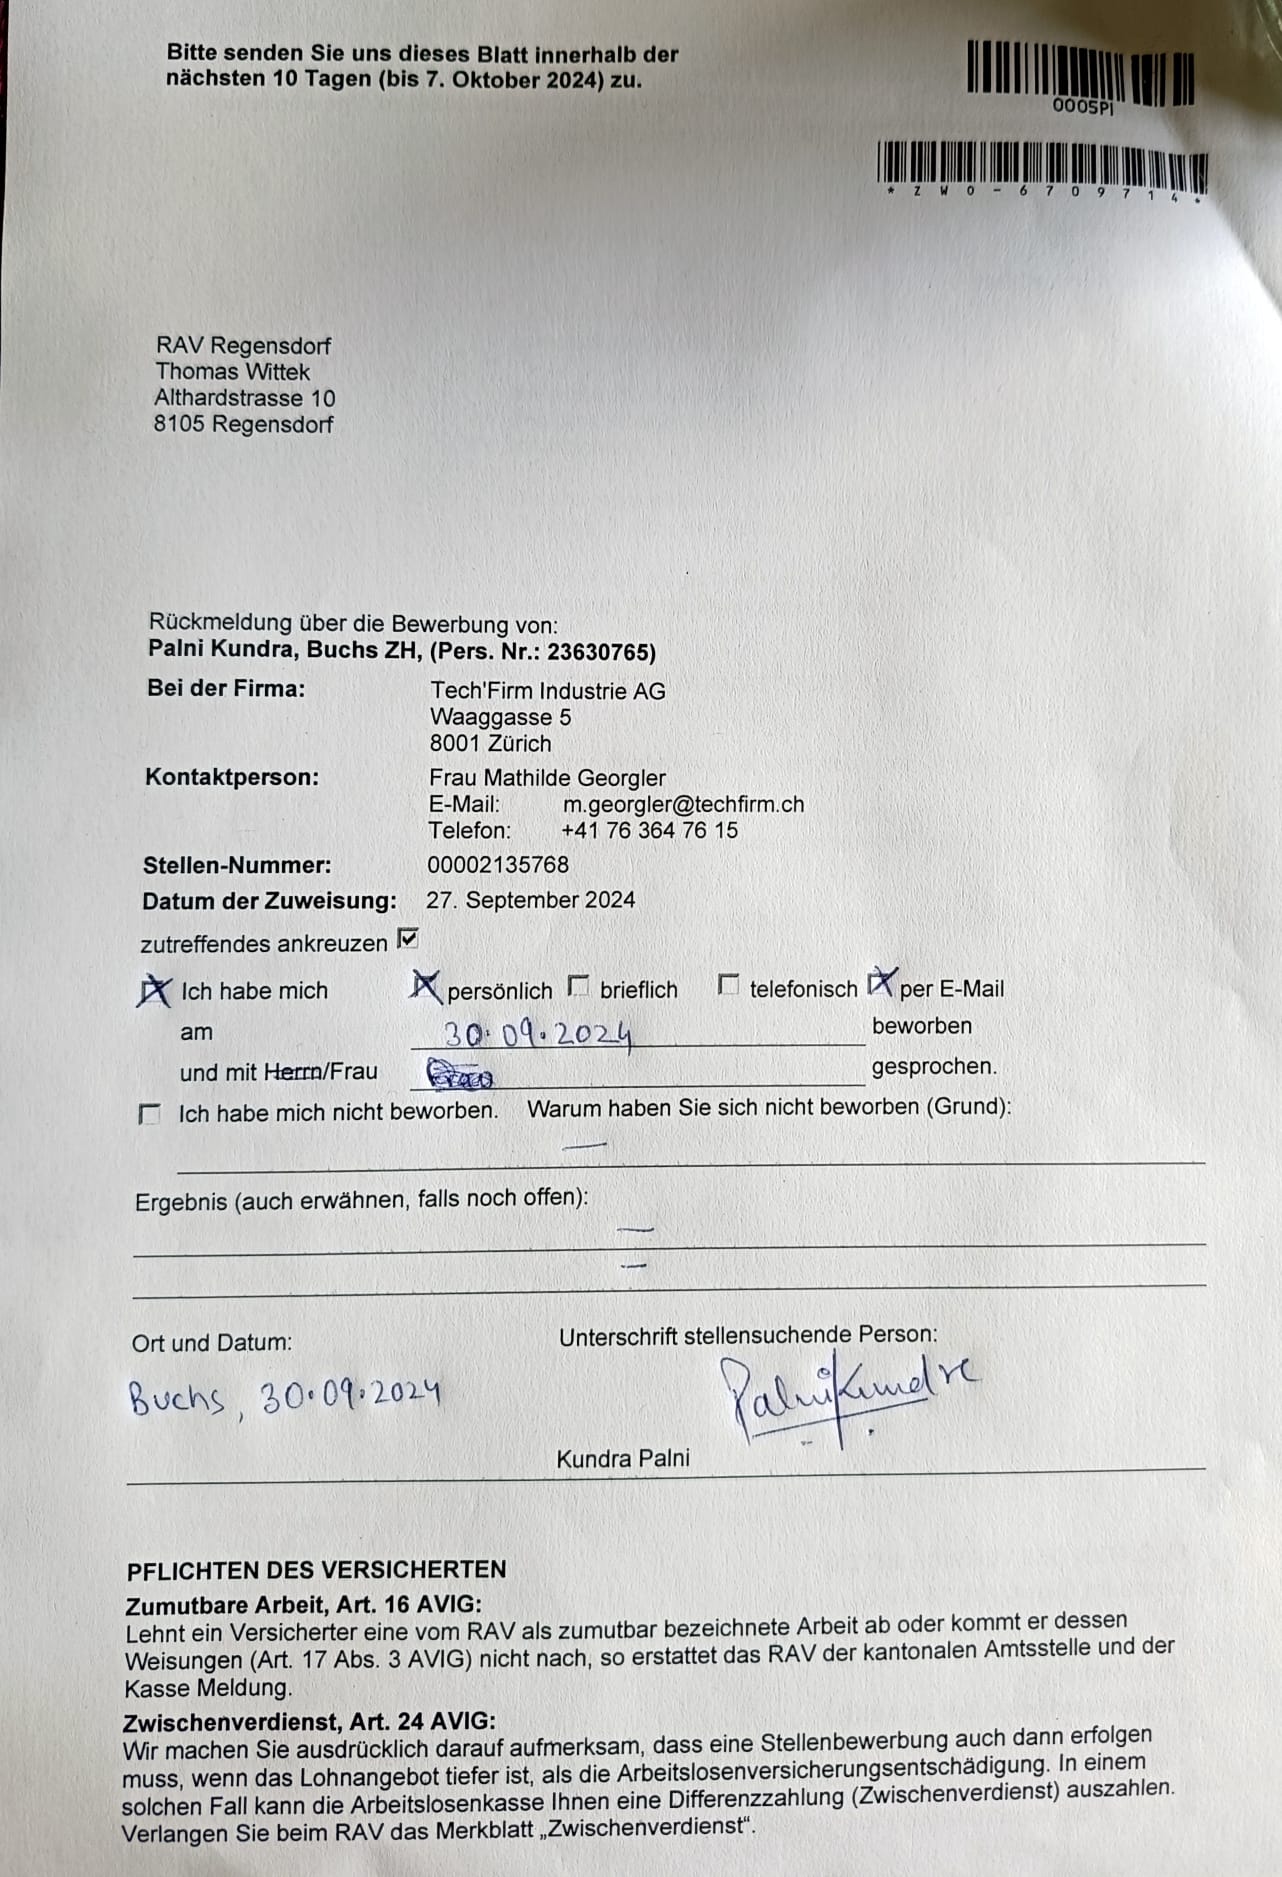 Bitte senden Sie uns dieses Blatt innerhalb der
nächsten 10 Tagen (bis 7. Oktober 2024) zu.
0005PI
*ZW0-6709714*
RAV Regensdorf
Thomas Wittek
Althardstrasse 10
8105 Regensdorf
Rückmeldung über die Bewerbung von:
Palni Kundra, Buchs ZH, (Pers. Nr.: 23630765)
Bei der Firma: Tech'Firm Industrie AG
Waaggasse 5
8001 Zürich
Kontaktperson: Frau Mathilde Georgler
E-Mail: m.georgler@techfirm.ch
Telefon: +41 76 364 76 15
Stellen-Nummer: 00002135768
Datum der Zuweisung: 27. September 2024
zutreffendes ankreuzen
Ich habe mich persönlich brieflich telefonisch per E-Mail
am 30.09.2024 beworben
und mit Herrn/Frau gesprochen.
Ich habe mich nicht beworben. Warum haben Sie sich nicht beworben (Grund):
—
Ergebnis (auch erwähnen, falls noch offen):
—
—
Ort und Datum: Unterschrift stellensuchende Person:
Buchs, 30.09.2024 Palni Kundre
Kundra Palni
PFLICHTEN DES VERSICHERTEN
Zumutbare Arbeit, Art. 16 AVIG:
Lehnt ein Versicherter eine vom RAV als zumutbar bezeichnete Arbeit ab oder kommt er dessen
Weisungen (Art. 17 Abs. 3 AVIG) nicht nach, so erstattet das RAV der kantonalen Amtsstelle und der
Kasse Meldung.
Zwischenverdienst, Art. 24 AVIG:
Wir machen Sie ausdrücklich darauf aufmerksam, dass eine Stellenbewerbung auch dann erfolgen
muss, wenn das Lohnangebot tiefer ist, als die Arbeitslosenversicherungsentschädigung. In einem
solchen Fall kann die Arbeitslosenkasse Ihnen eine Differenzzahlung (Zwischenverdienst) auszahlen.
Verlangen Sie beim RAV das Merkblatt „Zwischenverdienst“.